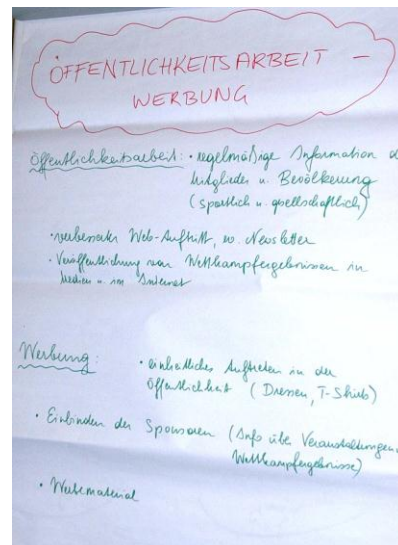 ÖFFENTLICHKEITSARBEIT –
WERBUNG
Öffentlichkeitsarbeit: • regelmäßige Information d
Mitglieder u. Bevölkerung
(sportlich u. gesellschaftlich)
• verbesserter Web-Auftritt, ev. Newsletter
• Veröffentlichung von Wettkampfergebnissen in
Medien u. im Internet
Werbung:
• einheitliches Auftreten in der
Öffentlichkeit (Dressen, T-Shirts)
• Einbinden der Sponsoren (Info über Veranstaltungen,
Wettkampfergebnisse)
• Werbematerial